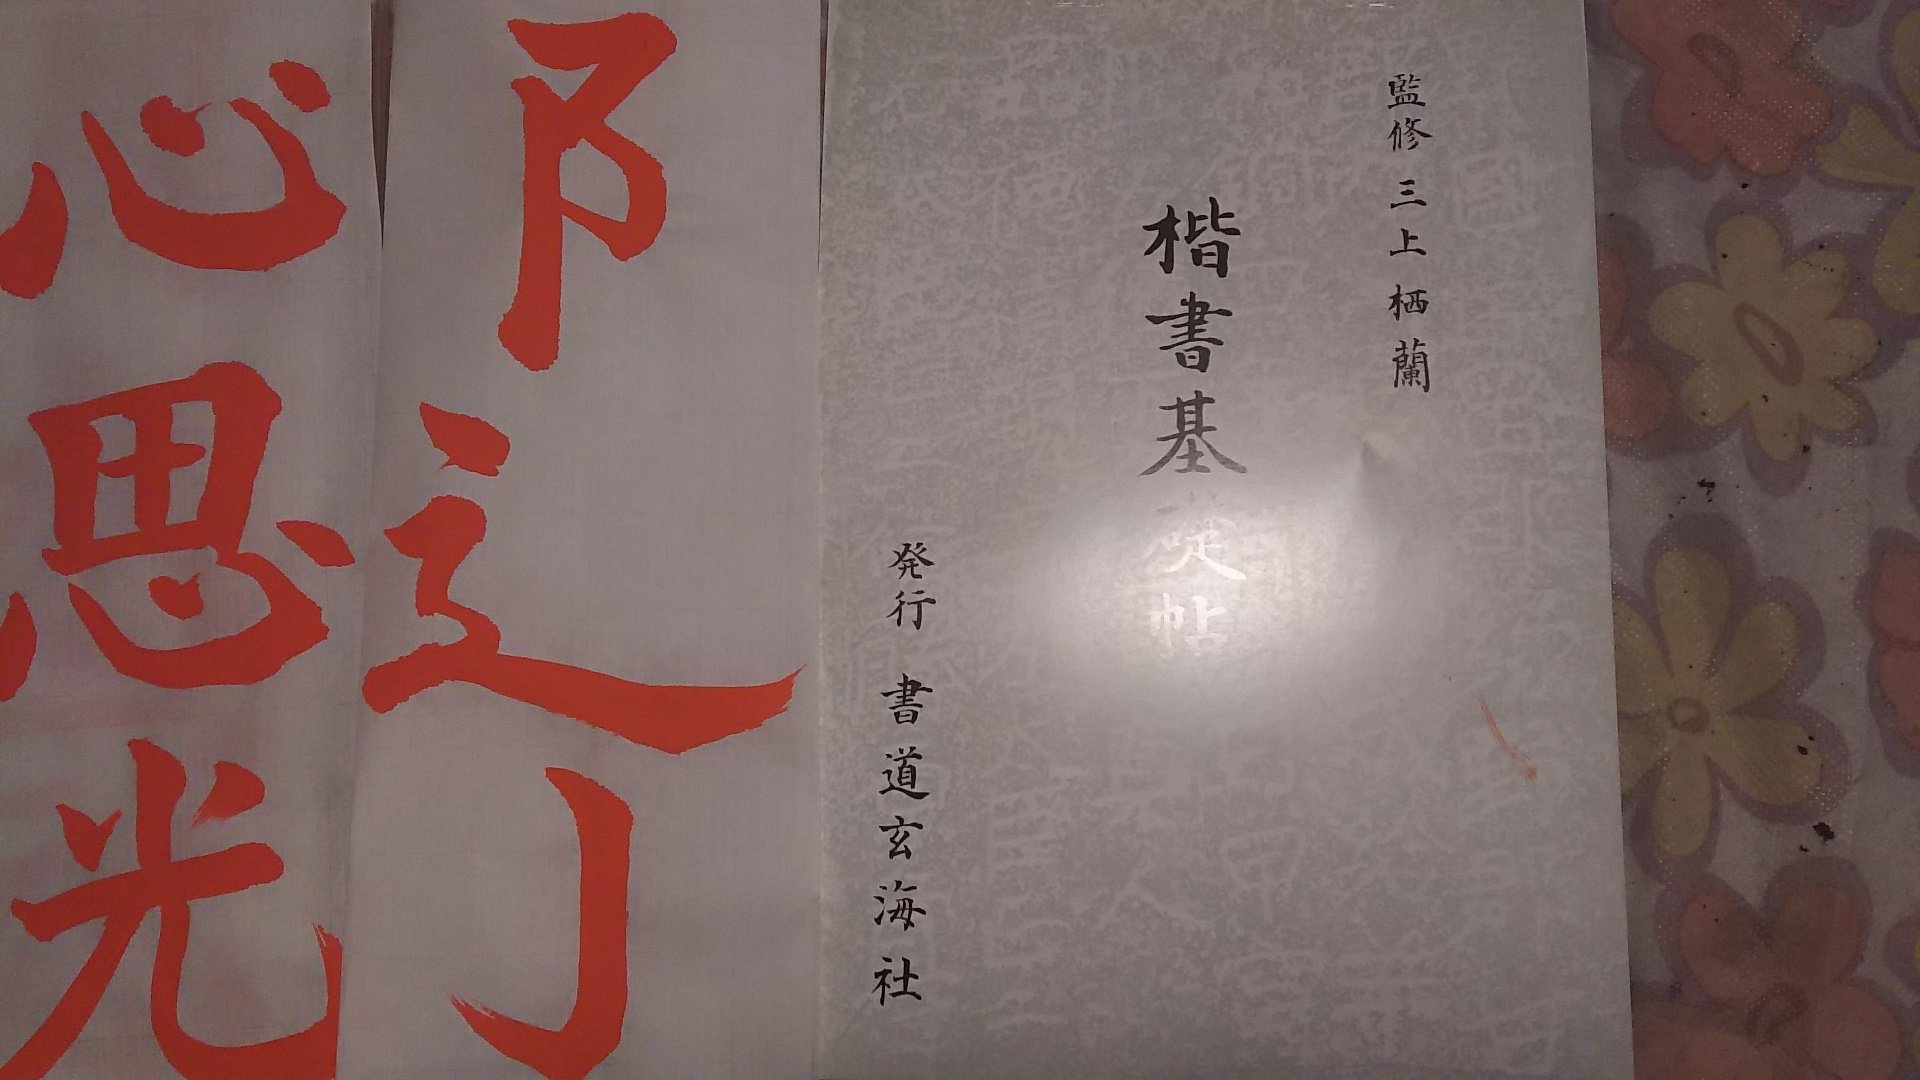 監修 三上栖蘭
楷書基礎帖
発行 書道玄海社
阝
辶
亅
心
思
光